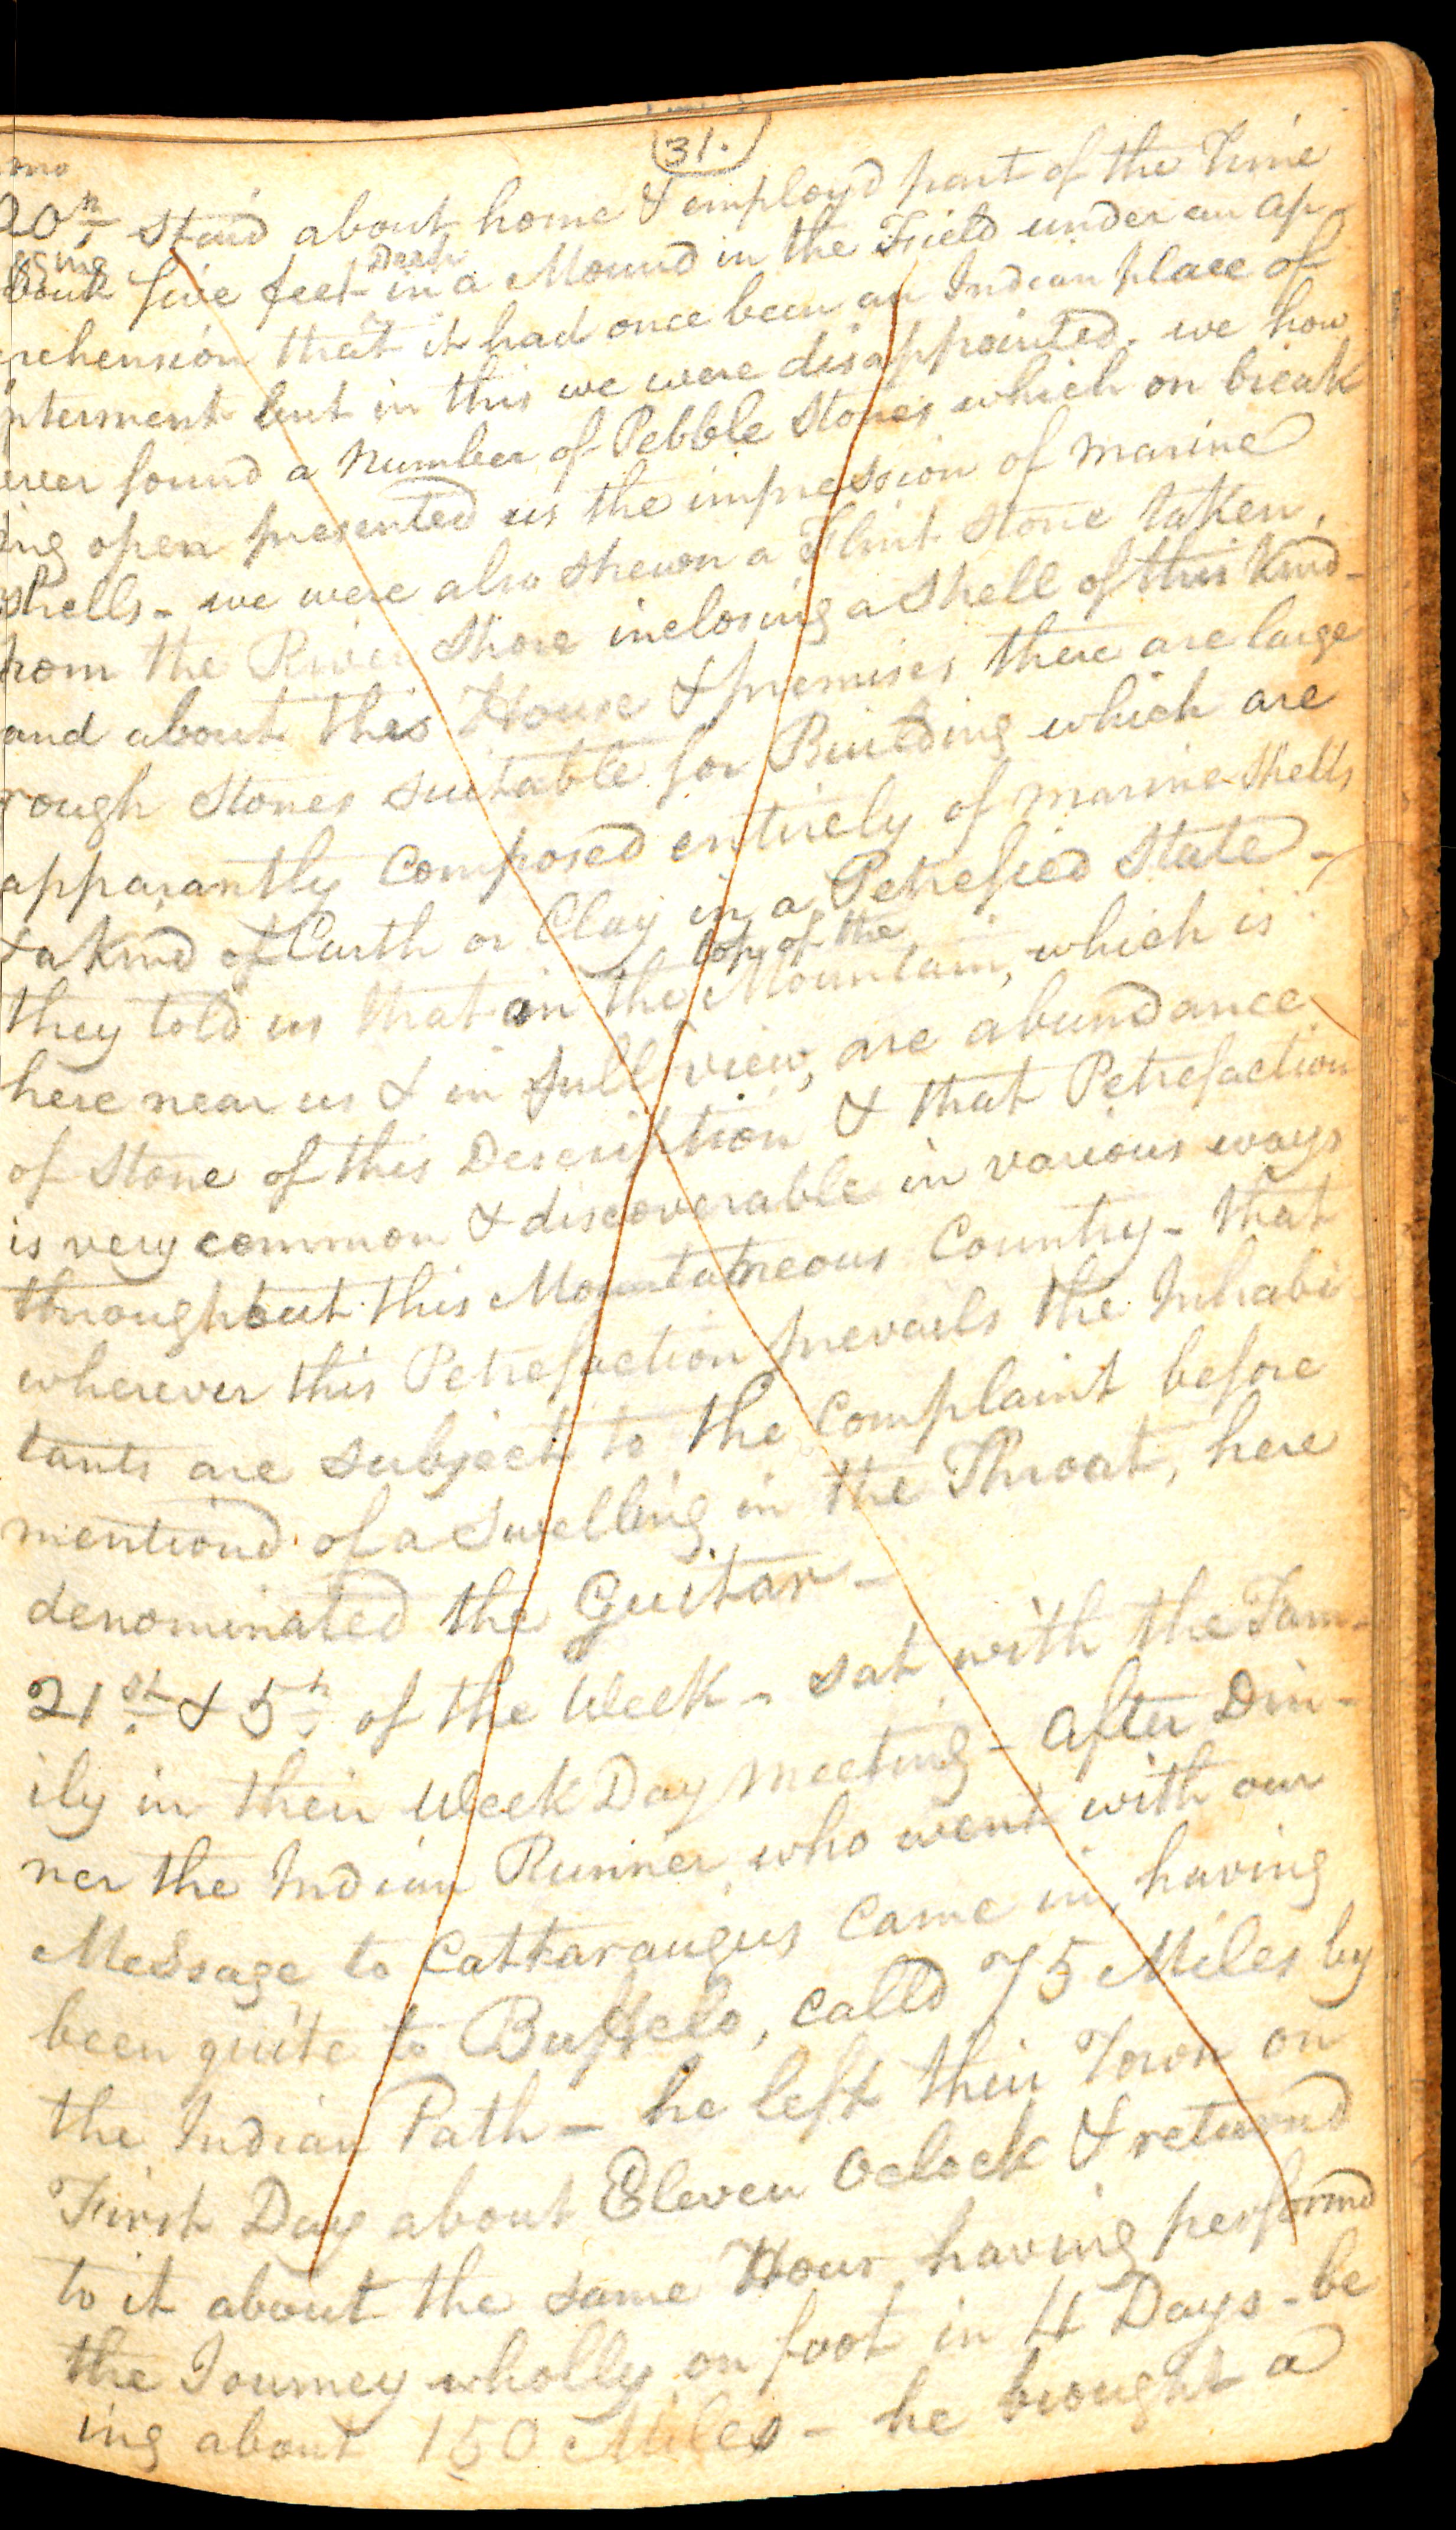 31.
mo
20th staid about home & employd part of the Time
ging
about five feet Deep in a Mound in the Field under an ap
prehension that it had once been an Indian place of
interment but in this we were disappointed. we how
ever found a Number of Pebble Stones which on break
ing open presented us the impression of marine
shells - we were also shewn a Flint Stone taken
from the River Shore inclosing a Shell of this Kind -
and about this House & premises there are large
rough Stones suitable for Building which are
apparantly Composed entirely of marine Shells
& a Kind of Earth or Clay in a Petrefied State -
they told us that on the top of the Mountain, which is
here near us & in full view, are abundance
of Stone of this Description & that Petrefaction
is very common & discoverable in various ways
throughout this Mountaineous Country - that
wherever this Petrefaction prevails the Inhabi
tants are subject to the Complaint before
mentiond of a Swelling in the Throat, here
denominated the Guitar -
21st & 5th of the Week - sat with the Fam-
ily in their Week Day Meeting - after Din-
ner the Indian Runner who went with our
Message to Cattaraugus Came in, having
been quite to Buffelo, calld 75 Miles by
the Indian Path - he left their Town on
First Day about Eleven Oclock & returnd
to it about the same Hour having performd
the Journey wholly on foot in 4 Days - be
ing about 150 Miles - he brought a